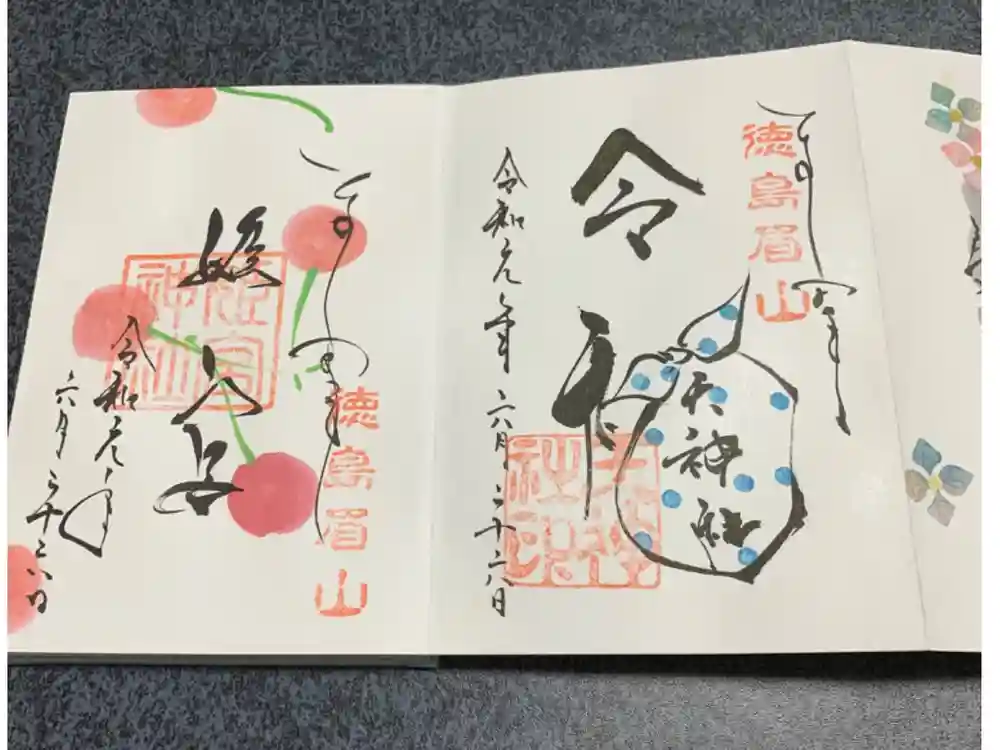 徳島眉山
令和
天神社
令和元年 六月二十六日
奉拝
徳島眉山
姫宮
姫宮神社
令和元年
六月二十六日